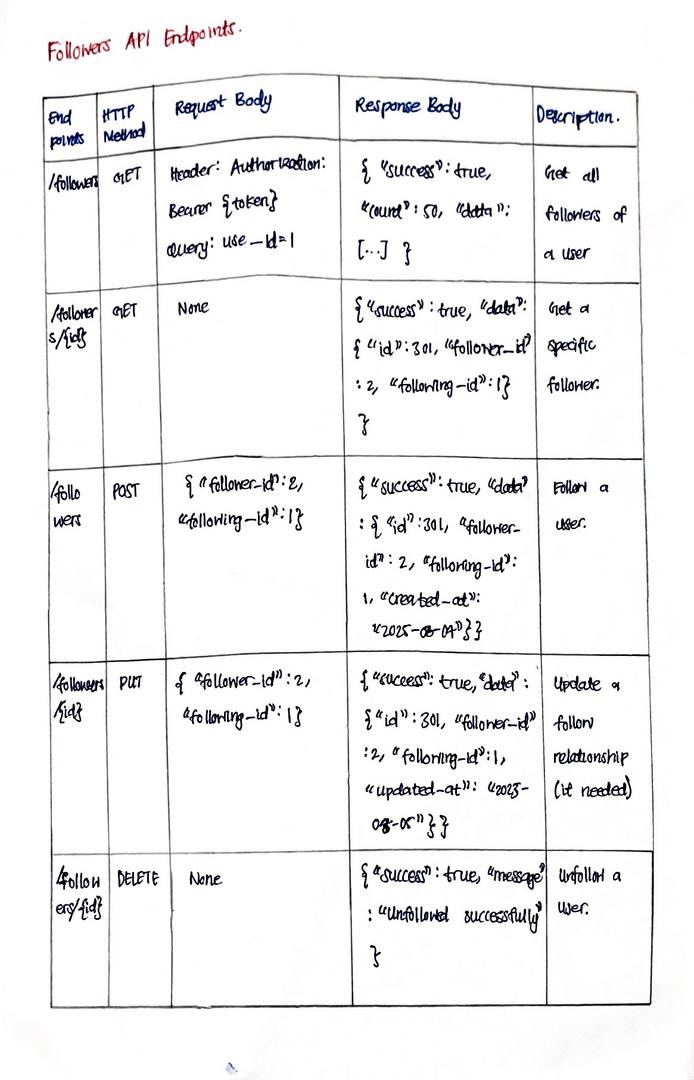 Followers API Endpoints.
End points
HTTP Method
Request Body
Response Body
Description.
/followers
GET
Header: Authorization:
Bearer {token}
Query: use_id=1
{ "success": true,
"count": 50, "data":
[...] }
Get all
followers of
a user
/follower
s/{id}
GET
None
{ "success": true, "data":
{ "id": 301, "follower_id"
: 2, "following-id": 1}
}
Get a
specific
follower.
/follo
wers
POST
{ "follower-id": 2,
"following-id": 1}
{ "success": true, "data"
: { "id": 301, "follower-
id": 2, "following-id":
1, "created-at":
"2025-08-04"}}
Follow a
user.
/followers
/{id}
PUT
{ "follower-id": 2,
"following-id": 1}
{ "success": true, "data":
{ "id": 301, "follower-id"
: 2, "following-id": 1,
"updated-at": "2023-
08-05"}}
Update a
follow
relationship
(if needed)
/follow
ers/{id}
DELETE
None
{ "success": true, "message"
: "Unfollowed successfully"
}
Unfollow a
user.